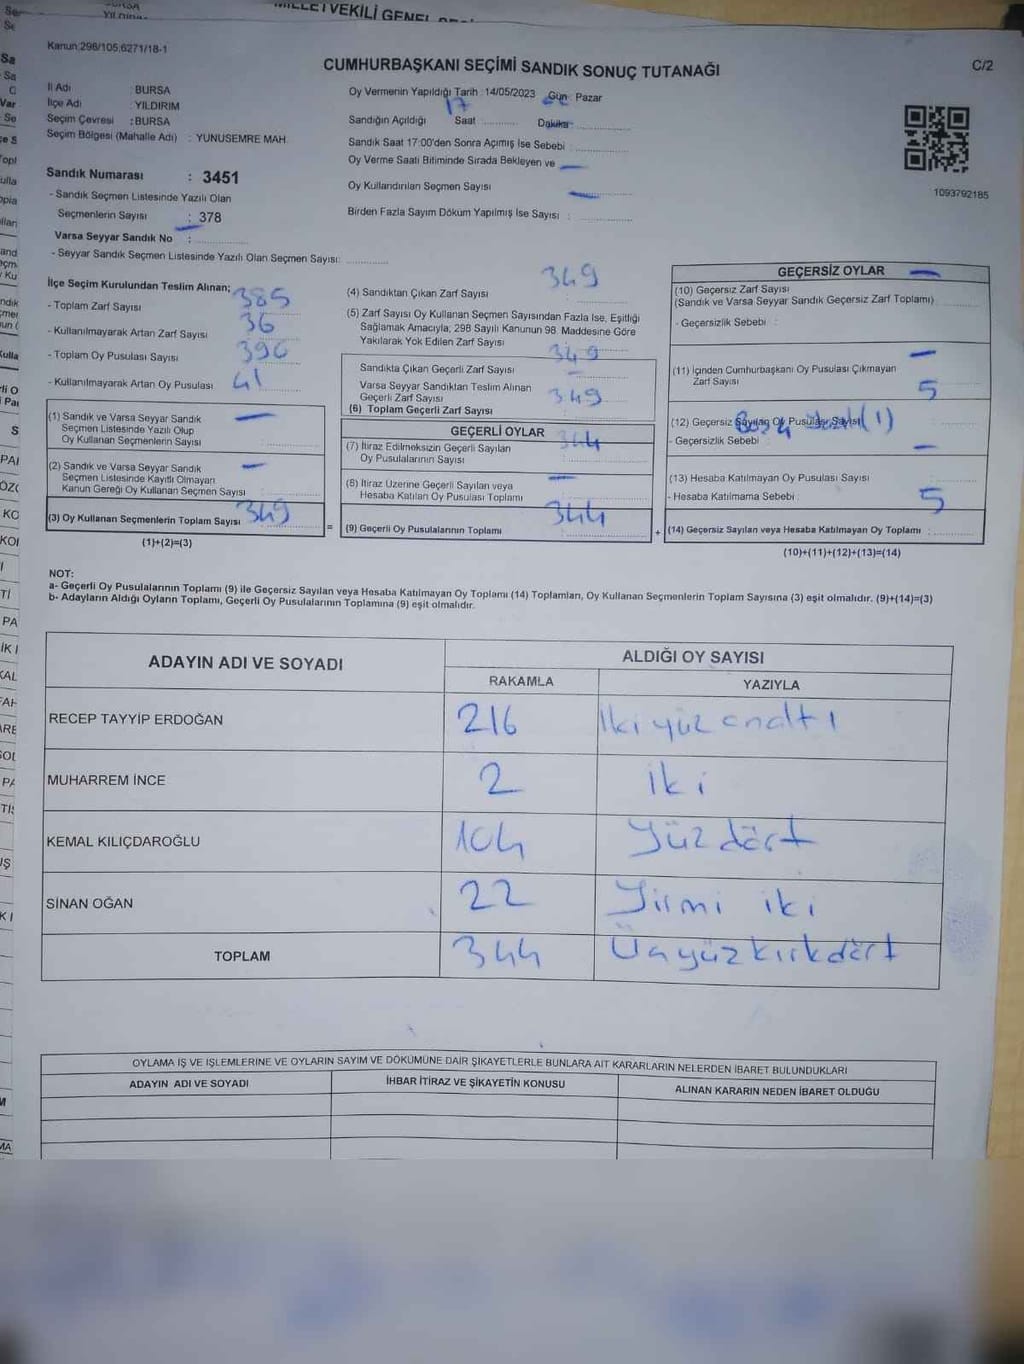 MİLLETVEKİLİ GENEL
Kanun:298/105;6271/18-1
CUMHURBAŞKANI SEÇİMİ SANDIK SONUÇ TUTANAĞI
C/2
İl Adı : BURSA
İlçe Adı : YILDIRIM
Seçim Çevresi : BURSA
Seçim Bölgesi (Mahalle Adı) : YUNUSEMRE MAH.
Sandık Numarası : 3451
- Sandık Seçmen Listesinde Yazılı Olan
Seçmenlerin Sayısı : 378
Varsa Seyyar Sandık No :
- Seyyar Sandık Seçmen Listesinde Yazılı Olan Seçmen Sayısı:
Oy Vermenin Yapıldığı Tarih : 14/05/2023 Gün : Pazar
Sandığın Açıldığı Saat 17 Dakika
Sandık Saat 17:00'den Sonra Açımış İse Sebebi :
Oy Verme Saati Bitiminde Sırada Bekleyen ve
Oy Kullandırılan Seçmen Sayısı
Birden Fazla Sayım Döküm Yapılmış İse Sayısı :
1093792185
İlçe Seçim Kurulundan Teslim Alınan;
- Toplam Zarf Sayısı 385
- Kullanılmayarak Artan Zarf Sayısı 36
- Toplam Oy Pusulası Sayısı 390
- Kullanılmayarak Artan Oy Pusulası 41
(1) Sandık ve Varsa Seyyar Sandık
Seçmen Listesinde Yazılı Olup
Oy Kullanan Seçmenlerin Sayısı
(2) Sandık ve Varsa Seyyar Sandık
Seçmen Listesinde Kayıtlı Olmayan
Kanun Gereği Oy Kullanan Seçmen Sayısı
(3) Oy Kullanan Seçmenlerin Toplam Sayısı 349
(1)+(2)=(3)
=
(4) Sandıktan Çıkan Zarf Sayısı 349
(5) Zarf Sayısı Oy Kullanan Seçmen Sayısından Fazla İse, Eşitliği
Sağlamak Amacıyla, 298 Sayılı Kanunun 98. Maddesine Göre
Yakılarak Yok Edilen Zarf Sayısı
Sandıkta Çıkan Geçerli Zarf Sayısı 349
Varsa Seyyar Sandıktan Teslim Alınan
Geçerli Zarf Sayısı
(6) Toplam Geçerli Zarf Sayısı 349
GEÇERLİ OYLAR
(7) İtiraz Edilmeksizin Geçerli Sayılan
Oy Pusulalarının Sayısı 344
(8) İtiraz Üzerine Geçerli Sayılan veya
Hesaba Katılan Oy Pusulası Toplamı
(9) Geçerli Oy Pusulalarının Toplamı 344
+
GEÇERSİZ OYLAR
(10) Geçersiz Zarf Sayısı
(Sandık ve Varsa Seyyar Sandık Geçersiz Zarf Toplamı)
- Geçersizlik Sebebi :
(11) İçinden Cumhurbaşkanı Oy Pusulası Çıkmayan
Zarf Sayısı
(12) Geçersiz Sayılan Oy Pusulası Sayısı 5
- Geçersizlik Sebebi (1)
(13) Hesaba Katılmayan Oy Pusulası Sayısı
- Hesaba Katılmama Sebebi :
(14) Geçersiz Sayılan veya Hesaba Katılmayan Oy Toplamı : 5
(10)+(11)+(12)+(13)=(14)
NOT:
a- Geçerli Oy Pusulalarının Toplamı (9) ile Geçersiz Sayılan veya Hesaba Katılmayan Oy Toplamı (14) Toplamları, Oy Kullanan Seçmenlerin Toplam Sayısına (3) eşit olmalıdır. (9)+(14)=(3)
b- Adayların Aldığı Oyların Toplamı, Geçerli Oy Pusulalarının Toplamına (9) eşit olmalıdır.
ADAYIN ADI VE SOYADI
ALDIĞI OY SAYISI
RAKAMLA YAZIYLA
RECEP TAYYİP ERDOĞAN 216 İki yüz onaltı
MUHARREM İNCE 2 İki
KEMAL KILIÇDAROĞLU 104 Yüz dört
SİNAN OĞAN 22 Yirmi iki
TOPLAM 344 Üçyüzkırkdört
OYLAMA İŞ VE İŞLEMLERİNE VE OYLARIN SAYIM VE DÖKÜMÜNE DAİR ŞİKAYETLERLE BUNLARA AİT KARARLARIN NELERDEN İBARET BULUNDUKLARI
ADAYIN ADI VE SOYADI
İHBAR İTİRAZ VE ŞİKAYETİN KONUSU
ALINAN KARARIN NEDEN İBARET OLDUĞU